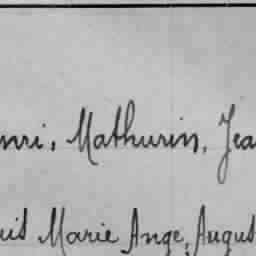 nri, Mathurin, Jea
uis Marie Ange, Augus